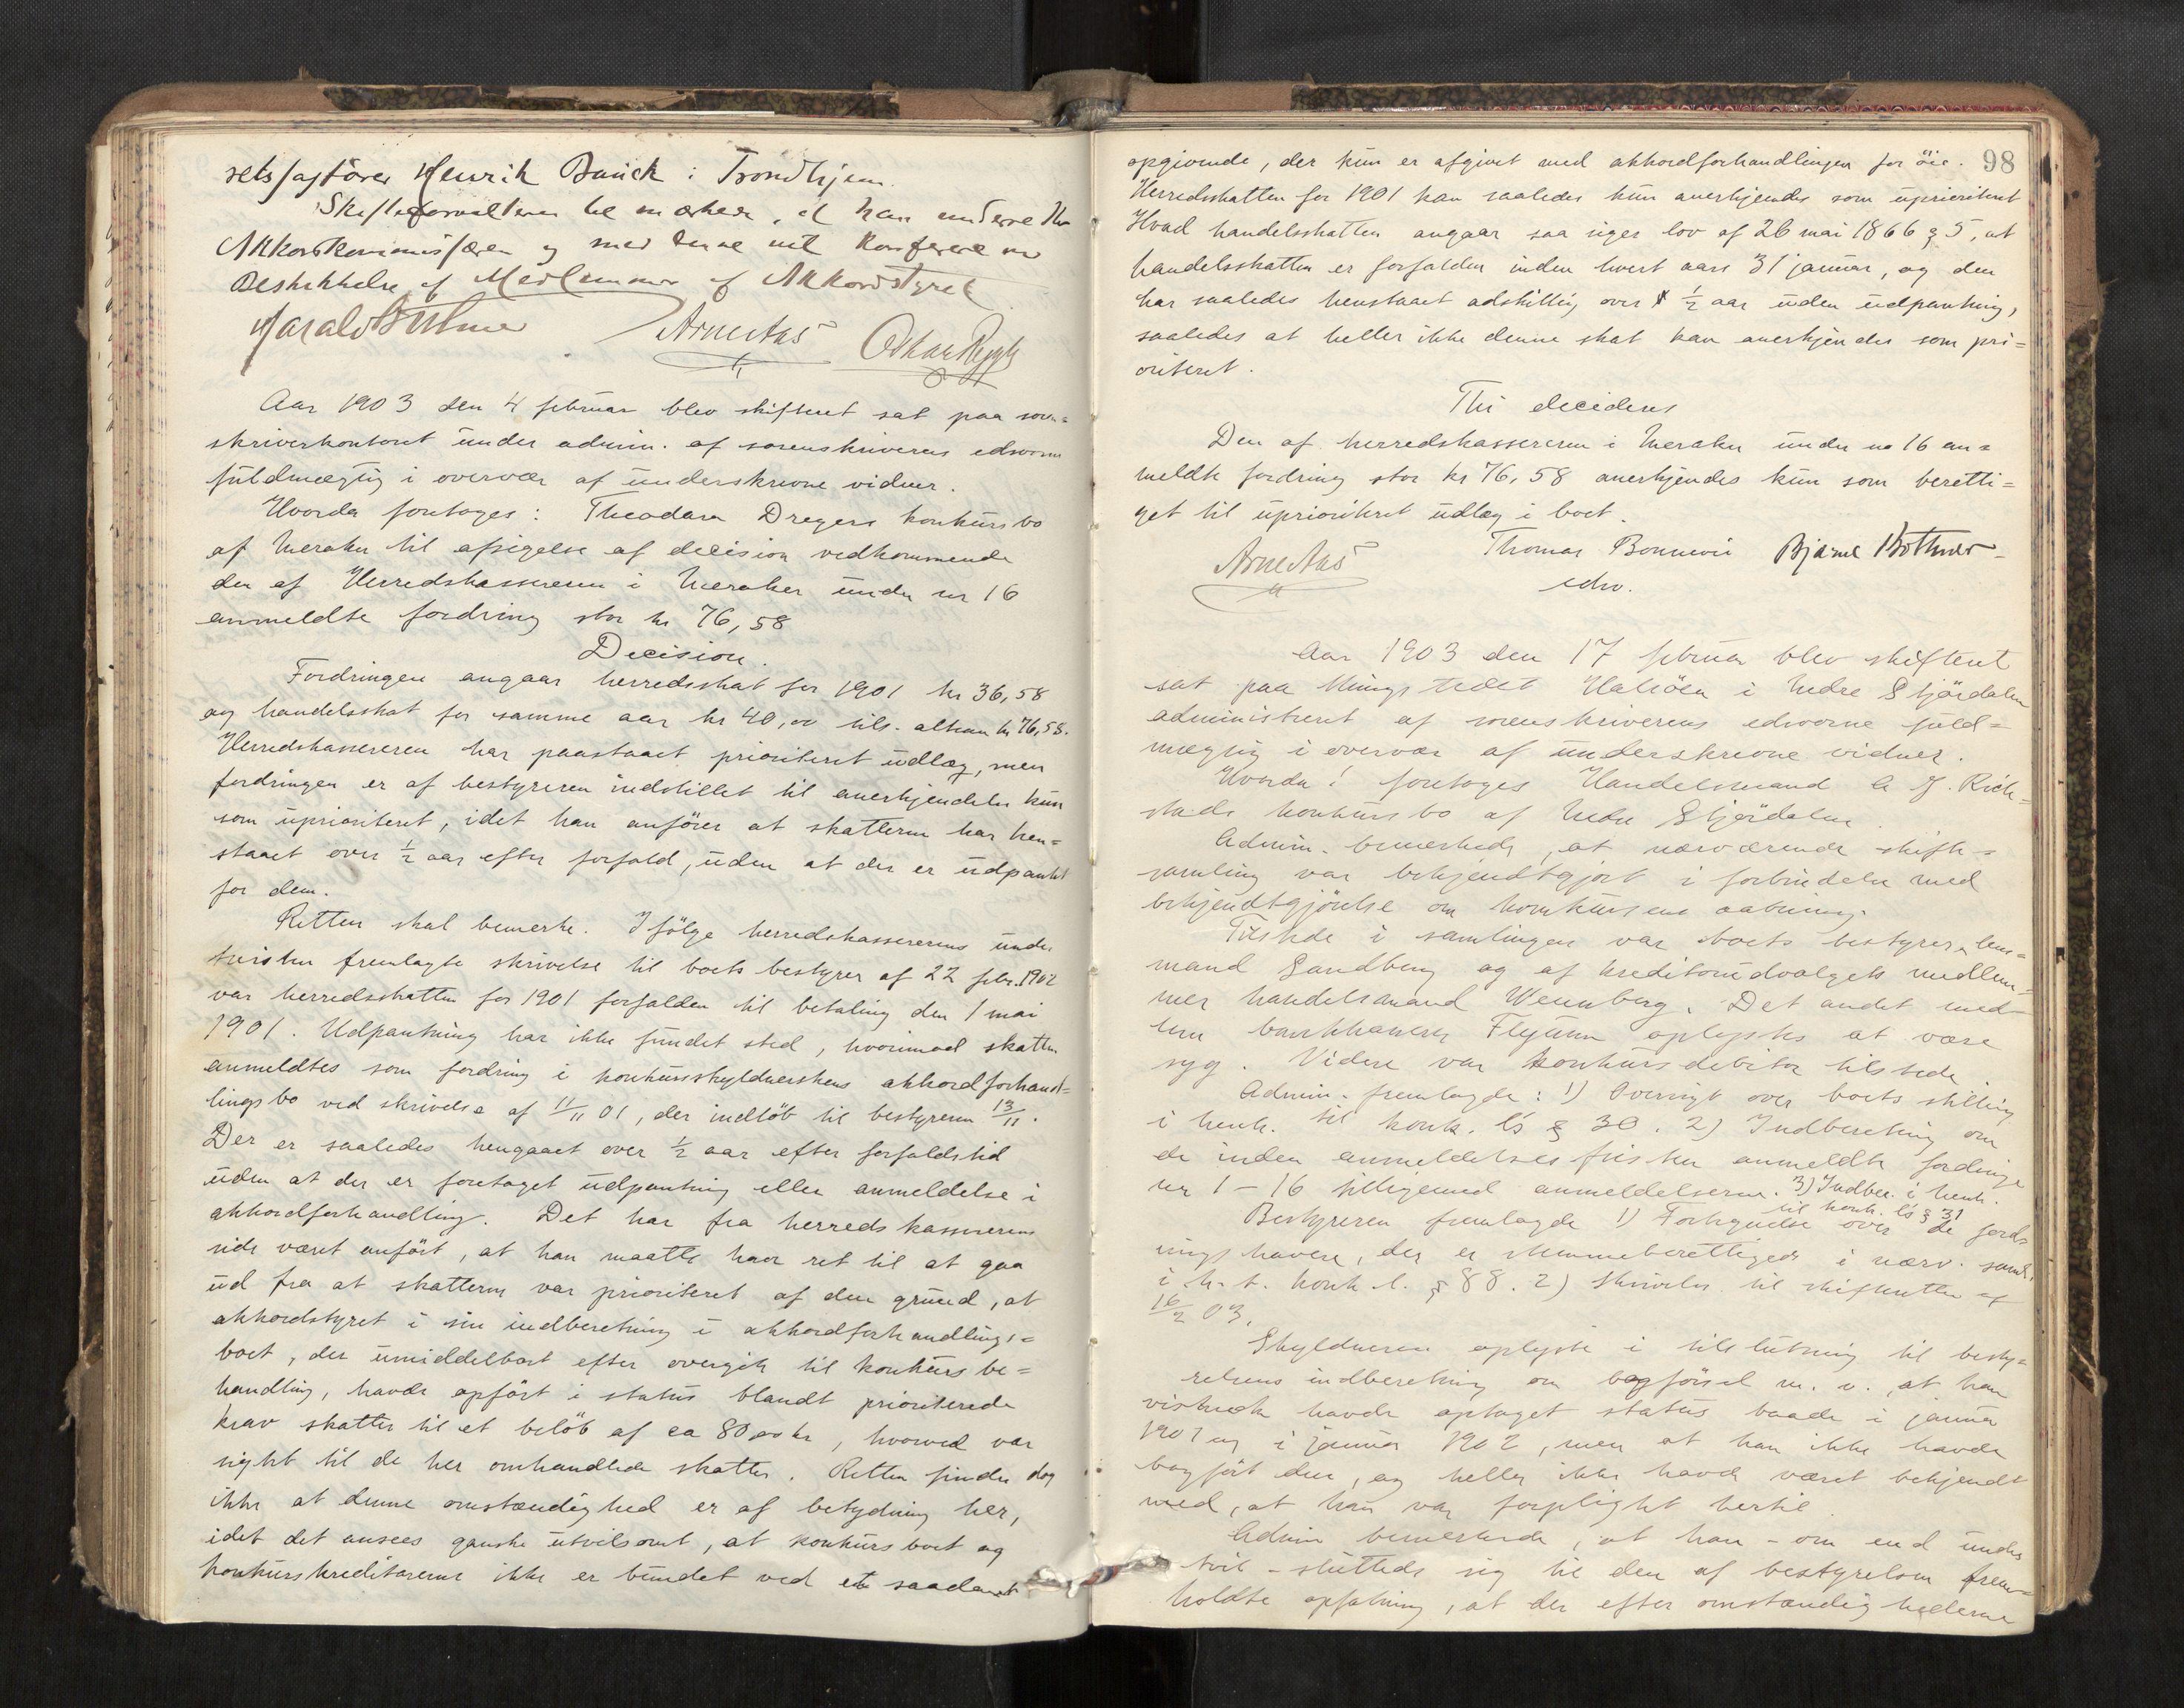 retssagfører Henrik Bauck i Trondhjem.
Skifteforvalteren bemærkede, at han underrette
Akkordkommissæren og med denne vil konferere om
Beskikkelse af Medlemmer af Akkordstyret
Harald Bothner Arne Aas Oskar
Aar 1903 den 4 februar blev skifteret sat paa soren=
skriverkontoret under admin. af sorenskriverens edsvorne
fuldmægtig i overvær af underskrevne vidner.
Hvorda foretoges: Theodara Dregers konkursbo
af Meraker til afsigelse af decision vedkommende
den af Herredskassereren i Meraker under nr 16
anmeldte fordring stor kr 76,58
Decision.
Fordringen angaar herredsskat for 1901 kr 36,58
og handelsskat for samme aar kr 40,00 tils. altsaa kr 76,58.
Herredskassereren har paastaaet prioriteret udlæg, men
fordringen er af bestyreren indstillet til anerkjendelse kun
som uprioriteret, idet han anfører at skatterne har hen=
staaet over ½ aar efter forfald, uden at der er udpantet
for dem.
Retten skal bemerke. Ifølge herredskassererens under
tvisten fremlagte skrivelse til boets bestyrer af 22 febr. 1902
var herredsskatten for 1901 forfalden til betaling den 1 mai
1901. Udpantning har ikke fundet sted, hvorimod skatten
anmeldtes som fordring i konkursskyldnerskens akkordforhand=
lingsbo ved skrivelse af 11/11 01, der indløb til bestyreren 13/11.
Der er saaledes hengaaet over ½ aar efter forfaldstid
uden at der er foretaget udpantning eller anmeldelse i
akkordforhandling. Det har fra herredskassererens
side været anført, at han maatte have ret til at gaa
ud fra at skatterne var prioriteret af den grund, at
akkordstyret i sin indberetning i akkordforhandlings=
boet, der umiddelbart efter overgik til konkursbe=
handling, havde opført i status blandt prioriterede
krav skatter til et beløb af ca 80 00 kr, hvorved var
sigtet til de her omhandlede skatter. Retten finder dog
ikke at denne omstændighed er af betydning her,
idet det ansees ganske utvilsomt, at konkursboet og
konkurskreditorerne ikke er bundet ved et saadant
98
opgivende, der kun er afgivet med akkordforhandlingen for øie.
Herredsskatten for 1901 kan saaledes kun anerkjendes som uprioriteret
Hvad handelsskatten angaar saa siger lov af 26 mai 1866 § 5, at
handelsskatten er forfalden inden hvert aars 31 januar, og den
har saaledes henstaaet adskillig over ½ aar uden udpantning,
saaledes at heller ikke denne skat kan anerkjendes som pri=
oriteret.
Thi decideres
Den af herredskassereren i Meraker under no 16 an=
meldte fordring stor kr 76,58 anerkjendes kun som beretti=
get til uprioriteret udlæg i boet.
Arne Aas Thomas Bonnevie Bjarne Bothner
edsv.
Aar 1903 den 17 februar blev skifteret
sat paa thingstedet Halsøen i Nedre Stjørdalen
administreret af sorenskriverens edsvorne fuld=
mægtig i overvær af underskrevne vidner.
Hvorda: foretoges Handelsmand A J. Rich=
stads konkursbo af Nedre Stjørdalen.
Admin. bemerkede, at nærværende skifte=
samling var bekjendtgjort i forbindelse med
bekjendtgjørelse om konkursens aabning.
Tilstede i samlingen var boets bestyrer, lens=
mand Sandberg og af kreditorudvalgets medlem=
mer handelsmand Wennberg. Det andet med=
lem bankkasserer Flejum oplystes at være
syg. Videre var konkursdebitor tilstede
Admin. fremlagde: 1) Oversigt over boets stilling
i henh. til konk. l's § 30. 2) Indberetning om
de inden anmeldelsesfristen anmeldte fordringer
nr 1 – 16 tilligemed anmeldelserne. 3) Indber. i henh.
til konk. l's § 31
Bestyreren fremlagde 1) Fortegnelse over de ford=
ringshavere, der er stemmeberettigede i nærv. saml.
i h. t. konk. l. § 88. 2) Skrivelse til skifteretten af
16/2 03.
Skyldneren oplyste i tilslutning til besty=
relsens indberetning om bogførsel m. v., at han
vistnok havde optaget status baade i januar
1901 og i januar 1902, men at han ikke havde
bogført den, og heller ikke havde været bekjendt
med, at han var forpligtet hertil.
Admin bemerkede, at han – om end under
tvil – sluttede sig til den af bestyrelsen frem=
holdte opfatning, at der efter omstændighederne